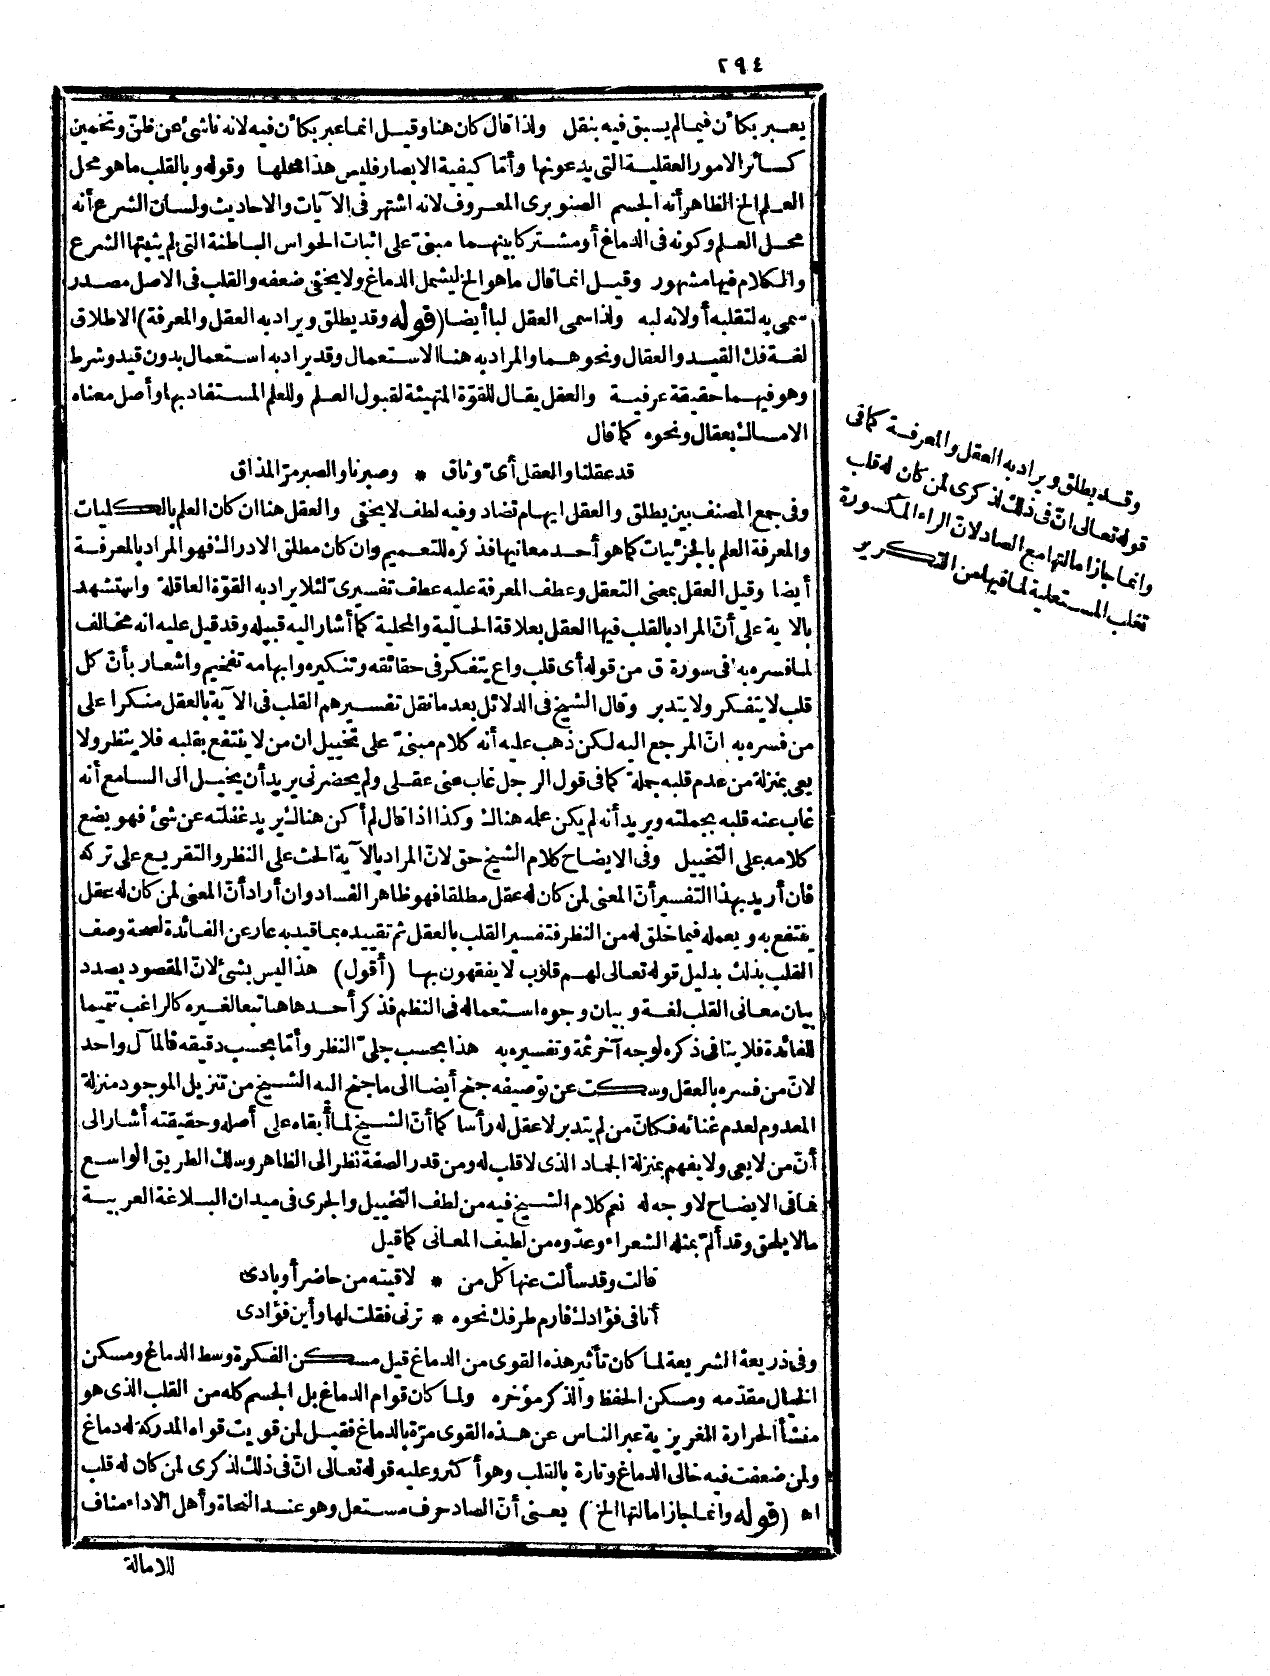 ٢٩٤
يعبر بكأن فيما لم يسبق فيه بنقل ولذا قال كان هنا وقيل انما عبر بكأن فيه لانه ناشئ عن ظنّ وتخمين
كسائر الامور العقلية التى يدعونها وأمّا كيفية الابصار فليس هذا محلها وقوله وبالقلب ما هو محل
العلم الخ الظاهر أنه الجسم الصنوبرى المعروف لانه اشتهر فى الآيات والاحاديث ولسان الشرع أنه
محل العلم وكونه فى الدماغ أو مشتركا بينهما مبنىّ على اثبات الحواس الباطنة التى لم يثبتها الشرع
والكلام فيها مشهور وقيل انما قال ما هو الخ ليشمل الدماغ ولا يخفى ضعفه والقلب فى الاصل مصدر
سمى به لتقلبه أو لانه لبه ولذا سمى العقل لبا أيضا (قوله وقد يطلق ويراد به العقل والمعرفة) الاطلاق
لغة فك القيد والعقال ونحوهما والمراد به هنا الاستعمال وقد يراد به استعمال بدون قيد وشرط
وهو فيهما حقيقة عرفية والعقل يقال للقوّة المتهيئة لقبول العلم وللعلم المستفاد بها وأصل معناه
الامساك بعقال ونحوه كما قال
قد عقلنا والعقل أىّ وثاق * وصبرنا والصبر مرّ المذاق
وفى جمع المصنف بين يطلق والعقل ايهام تضاد وفيه لطف لا يخفى والعقل هنا ان كان العلم بالكليات
والمعرفة العلم بالجزئيات كما هو أحد معانيها فذكره للتعميم وان كان مطلق الادراك فهو المراد بالمعرفة
أيضا وقيل العقل بمعنى التعقل وعطف المعرفة عليه عطف تفسيرىّ لئلا يراد به القوّة العاقلة واستشهد
بالاية على أنّ المراد بالقلب فيها العقل بعلاقة الحالية والمحلية كما أشار اليه قبيله وقد قيل عليه انه مخالف
لما فسره به فى سورة ق من قوله أى قلب واع يتفكر فى حقائقه وتنكيره وابهامه تفخيم واشعار بأنّ كل
قلب لا يتفكر ولا يتدبر وقال الشيخ فى الدلائل بعد ما نقل تفسيرهم القلب فى الآية بالعقل منكرا على
من فسره به انّ المرجع اليه لكن ذهب عليه أنه كلام مبنىّ على تخييل ان من لا ينتفع بقلبه فلا ينظر ولا
يعى بمنزلة من عدم قلبه جملة كما فى قول الرجل غاب عنى عقلى ولم يحضرنى يريد أن يخيل الى السامع أنه
غاب عنه قلبه بجملته ويريد أنه لم يكن علمه هناك وكذا اذا قال لم أكن هناك يريد غفلته عن شئ فهو يضع
كلامه على التخييل وفى الايضاح كلام الشيخ حق لانّ المراد بالآية الحث على النظر والتقريع على تركه
فان أريد بهذا التفسير أنّ المعنى لمن كان له عقل مطلقا فهو ظاهر الفساد وان أراد أنّ المعنى لمن كان له عقل
ينتفع به ويعمله فيما خلق له من النظر فتفسير القلب بالعقل ثم تقييده بما قيد به عار عن الفائدة لصحة وصف
القلب بذلك بدليل قوله تعالى لهم قلوب لا يفقهون بها (أقول) هذا ليس بشئ لانّ المقصود بصدد
بيان معانى القلب لغة وبيان وجوه استعماله فى النظم فذكر أحدها هنا تبعا لغيره كالراغب تتميما
للفائدة فلا ينافى ذكره لوجه آخر ثمة وتفسيره به هذا بحسب جلىّ النظر وأمّا بحسب دقيقه فالمآل واحد
لانّ من فسره بالعقل وسكت عن توصيفه جنح أيضا الى ما جنح اليه الشيخ من تنزيل الموجود منزلة
المعدوم لعدم غنائه فكانّ من لم يتدبر لا عقل له رأسا كما أنّ الشيخ لما أبقاه على أصله وحقيقته أشار الى
أنّ من لا يعى ولا يفهم بمنزلة الجماد الذى لا قلب له ومن قدر الصفة نظر الى الظاهر وسلك الطريق الواسع
فما فى الايضاح لا وجه له نعم كلام الشيخ فيه من لطف التخييل والجرى فى ميدان البلاغة العربية
ما لا يلحق وقد ألمّ بمثله الشعراء وعدّوه من لطيف المعانى كما قيل
قالت وقد سألت عنها كل من * لاقيته من حاضر أو بادى
أنا فى فؤادك فارم طرفك نحوه * ترنى فقلت لها وأين فؤادى
وفى ذريعة الشريعة لما كان تأثير هذه القوى من الدماغ قيل مسكن الفكرة وسط الدماغ ومسكن
الخيال مقدّمه ومسكن الحفظ والذكر مؤخره ولما كان قوام الدماغ بل الجسم كله من القلب الذى هو
منشأ الحرارة الغريزية عبر الناس عن هذه القوى مرّة بالدماغ فقيل لمن قويت قواه المدركة له دماغ
ولمن ضعفت فيه خالى الدماغ وتارة بالقلب وهو أكثر وعليه قوله تعالى انّ فى ذلك لذكرى لمن كان له قلب
اه (قوله وانما جاز امالتها الخ) يعنى أنّ الصاد حرف مستعل وهو عند النحاة وأهل الاداء مناف
للامالة
وقد يطلق ويراد به العقل والمعرفة كما فى
قوله تعالى انّ فى ذلك لذكرى لمن كان له قلب
وانما جاز امالتها مع الصاد لانّ الراء المكسورة
تغلب المستعلية لما فيها من التكرير